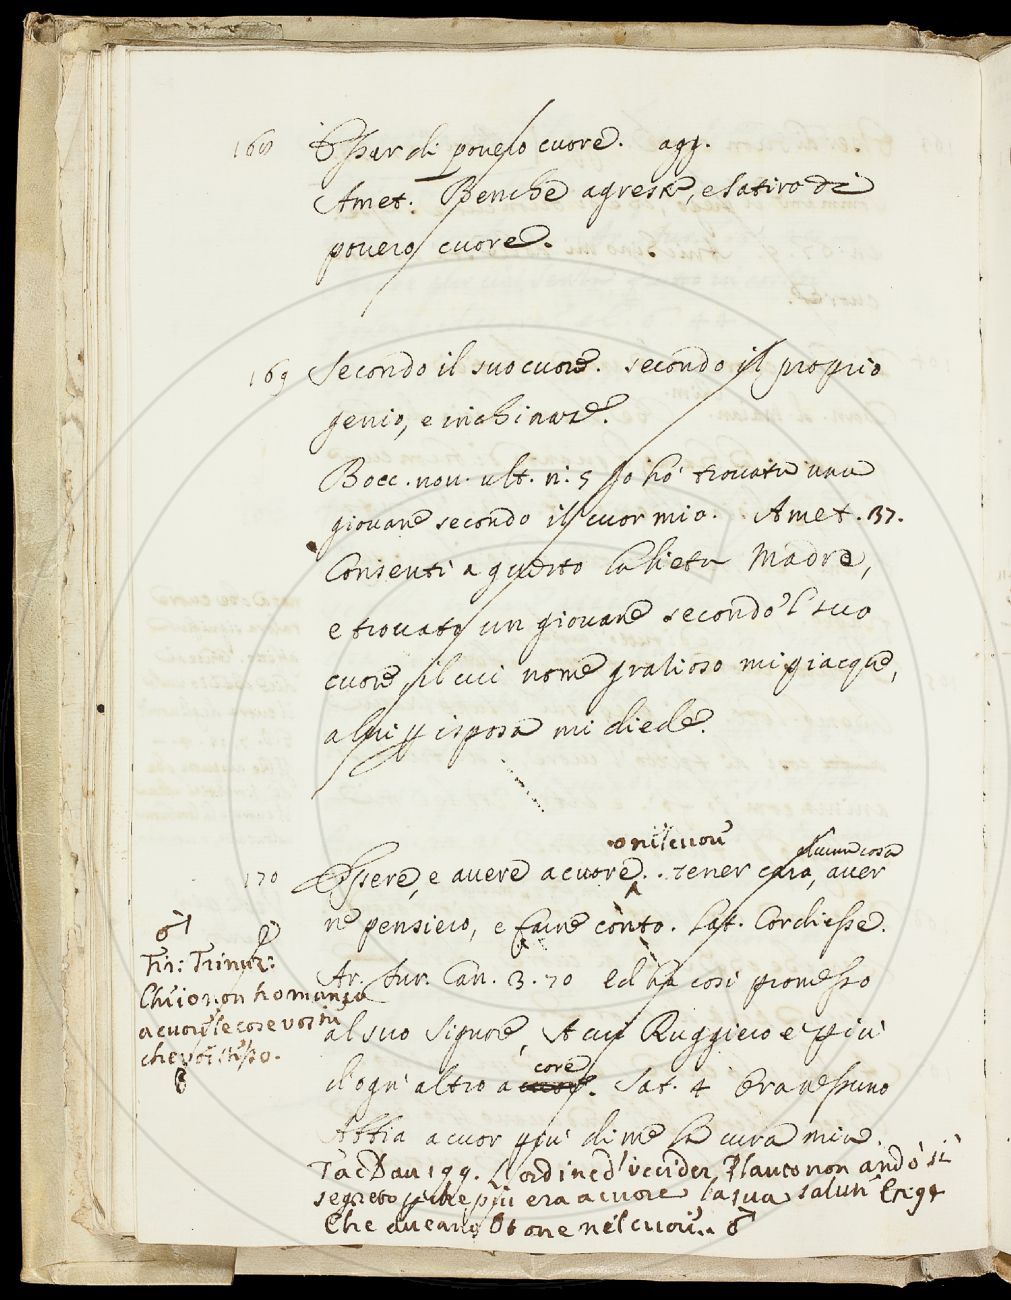 168 Esser di povero cuore. agg.
Amet. Benche agreste, e satiro di
povero cuore.
169 Secondo il suo cuore. secondo il proprio
genio, e inchinaze.
Bocc. nov. ult. n. 5 Io hò trovata una
giovane secondo il cuor mio. Amet. 37.
Consentì a questo la lieta Madre,
e trovato un giovane secondo 'l suo
cuore, il cui nome gratioso mi piacque,
a lui p isposa mi diede.
o nel cuore
alcuna cosa
170 Essere, e avere a cuore. tener cara, aver
ne pensiero, e farne conto. Lat. Cordi esse.
Ar. Fur. Can. 3. 70 ed ha così promesso
al suo Signore, A cui Ruggiero e più
core
d'ogn' altro a cuore. Sat. 4 Or a nessuno
Abbia a cuor più di me la cura mia.
Tac Dav 199. L'ordine d'uccider Plauto non andò sì
segreto p che più era a cuore la sua salute
Che aveano Otone nel cuore. ♂
♂
Fir: Trinuz:
Ch'io non ho manco
a cuore le cose vostre
che voi stesso.